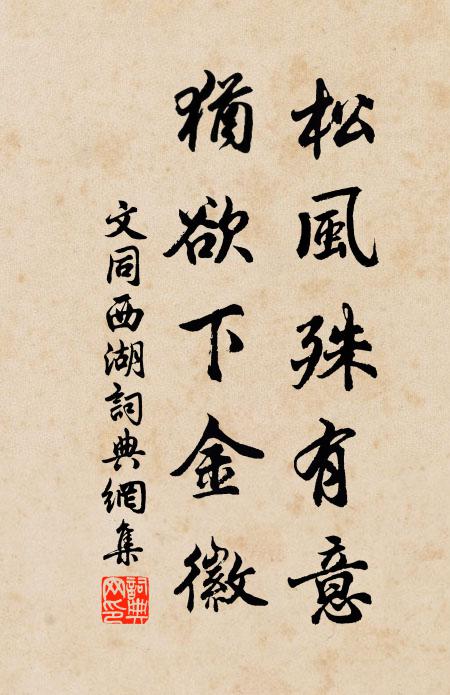 松風殊有意
猶欲下金徽
文同西湖詞典網集
詞典網印